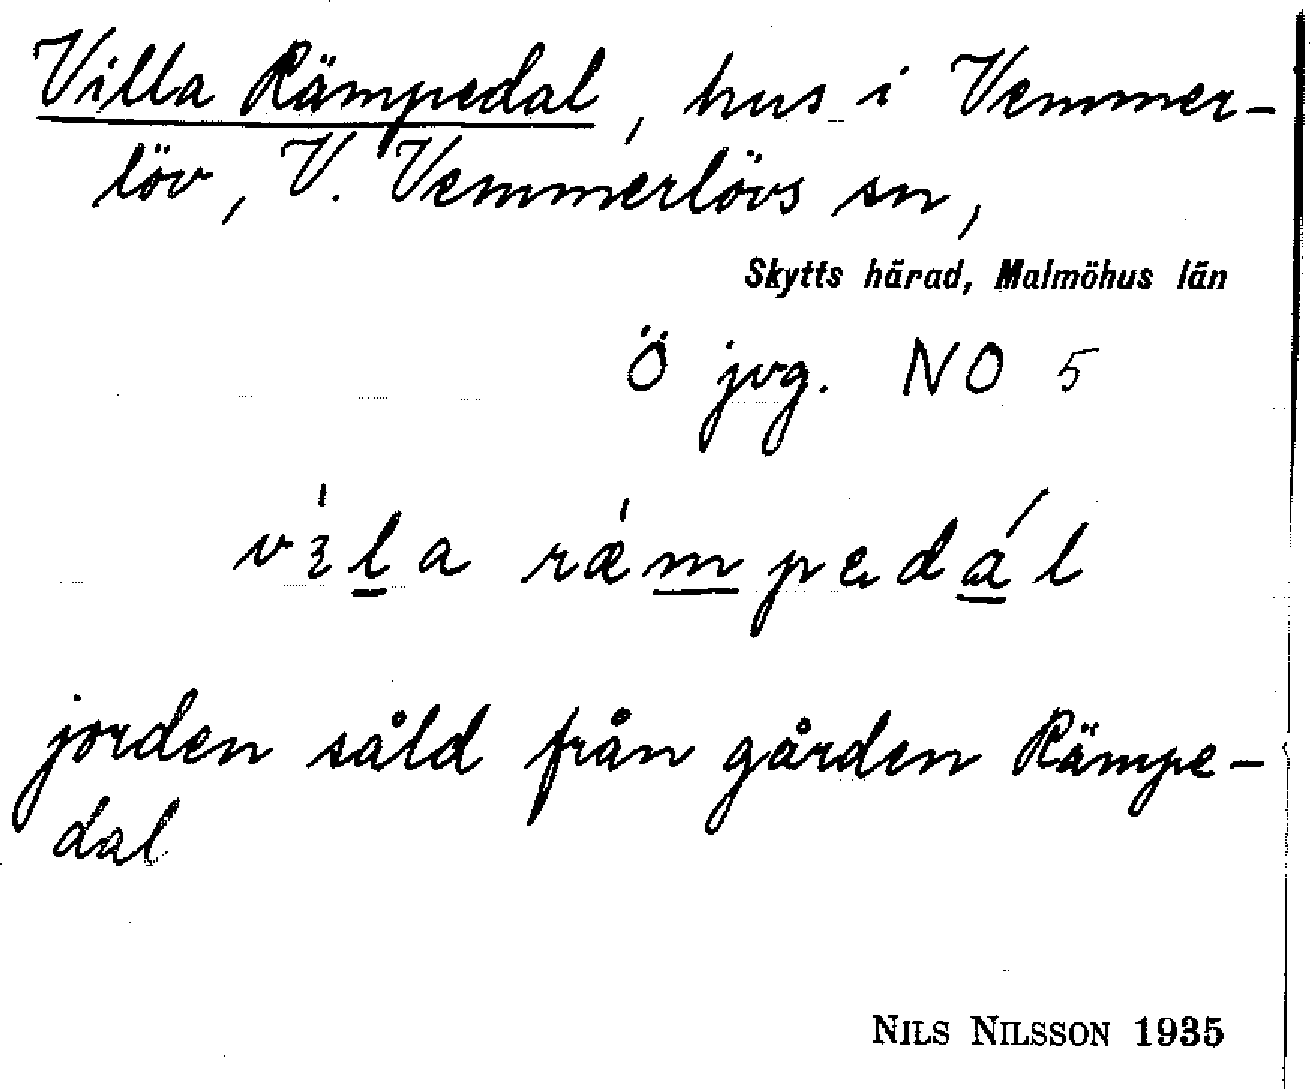 Villa Rämpedal, hus i Vemmer-
löv, V. Vemmerlövs sn,
Skytts härad, Malmöhus län
Ö jvg. NO 5
vı̍la ræ̍mpedál
jorden såld från gården Rämpe-
dal
NILS NILSSON 1935